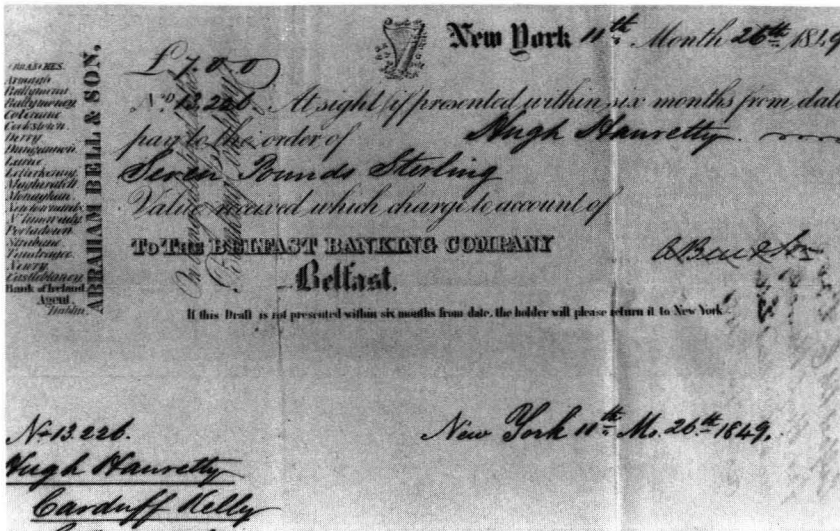 BRANCHES.
Armagh
Ballymena
Ballymoney
Coleraine
Cookstown
Derry
Dungannon
Larne
Letterkenny
Magherafelt
Monaghan
Newtownards
N'limavady
Portadown
Strabane
Tandragee
Newry
Castleblaney
Bank of Ireland
Agent.
Dublin.
ABRAHAM BELL & SON,
New York 11th Month 26th 1849
£7.00
No. 13.226. At sight (if presented within six months from date
pay to the order of Hugh Hauretty
Seven Pounds Sterling
Value received which charge to account of
To The BELFAST BANKING COMPANY
Belfast.
A Bell & Son
If this Draft is not presented within six months from date, the holder will please return it to New York
No 13.226.
New York 11th Mo. 26th 1849.
Hugh Hauretty
Carduff Kelly